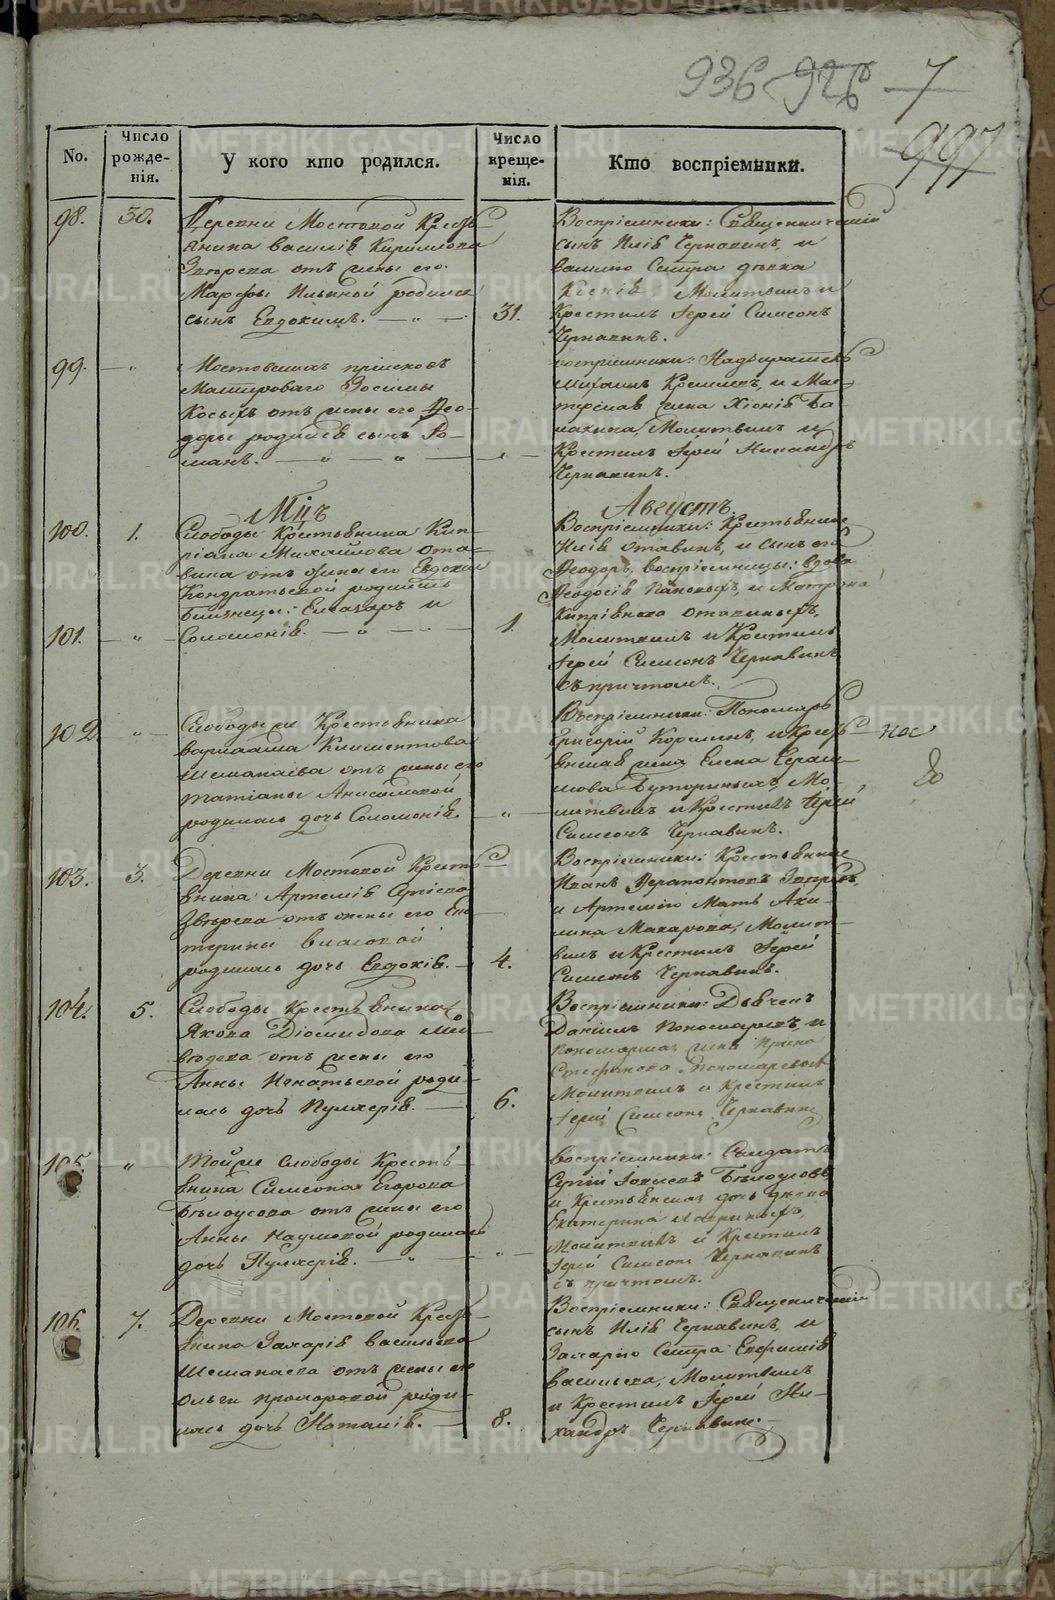 936 926 7
997
No.
Число рожде-нія.
У кого кто родился.
Число креще-нія.
Кто воспріемники.
98. 30.
Деревни Мостовой Кресть-
янина Василія Кирилова
Звѣрева отъ жены его
Марѳы Ильиной родился
сынъ Евдокимъ. — „ —
31.
Воспріемники: Священническій
сынъ Илія Чернавинъ, и
Василію Сестра дѣвка
Ксенія, Молитвилъ и
Крестилъ Іерей Симеонъ
Чернавинъ.
99. — „ —
Мостовскихъ пріисковъ
Мастероваго Зосимы
Косыхъ отъ жены его Ѳео-
доры родился сынъ Ро-
манъ. — „ — „ —
— „ —
воспріемники:
Михаилъ и Мас-
терская жена Хіонія Ба-
лакина, Молитвилъ и
Крестилъ Іерей Никандръ
Чернавинъ.
Мцъ Августъ.
100. 1.
Слободы Крестьянина Кип-
ріана Михайлова Ота-
вина отъ жены его Евдокіи
Кондратьевой родились
Близнецы: Елеазаръ и
101. — „ —
Соломонія. — „ —
1.
Воспріемники: Крестьянинъ
Илія Отавинъ, и сынъ его
Ѳеодоръ, воспріемницы: вдова
Ѳеодосія и Матрона
Кипріянова Отавиныхъ,
Молитвилъ и Крестилъ
Іерей Симеонъ Чернавинъ
съ причтомъ.
102. — „ —
Слободы же Крестьянина
Варлаама Климентова
Шеманаева отъ жены его
Татіаны Анисимовой
родилась дочь Соломонія.
— „ —
Воспріемники: Пономарь
Григорій Коровинъ, и Кресть-
янская жена Елена Гераси-
мова Буториныхъ, Мо-
литвилъ и Крестилъ Іерей
Симеонъ Чернавинъ.
103. 3.
Деревни Мостовой Кресть-
янина Артемія Сергіева
Звѣрева отъ жены его Ека-
терины Власовой
родилась дочь Евдокія.
4.
Воспріемники: Крестьянинъ
Иванъ Ферапонтовъ Звѣревъ,
и Артемію Мать Аки-
лина Макарова, Молит-
вилъ и Крестилъ Іерей
Симеонъ Чернавинъ.
104. 5.
Слободы Крестьянина
Якова Діомидова Мѣ-
ва отъ жены его
Анны Игнатьевой роди-
лась дочь Пулхерія. —
6.
Воспріемники: Дьячекъ
Даніилъ Пономаревъ и
Пономарская жена Ирина
Стефанова Пономаревыхъ
Молитвилъ и Крестилъ
Іерей Симеонъ Чернавинъ
105. — „ —
Той же слободы Кресть-
янина Симеона Егорова
Бѣлоусова отъ жены его
Анны Наумовой родилась
дочь Пулхерія. — „ —
— „ —
Воспріемники: Солдатъ
Сергій Іовлевъ Бѣлоусовъ,
и Крестьянская дочь дѣвка
Екатерина
Молитвилъ и Крестилъ
Іерей Симеонъ Чернавинъ
съ причтомъ.
106. 7.
Деревни Мостовой Кресть-
янина Захарія Васильева
Шеманаева отъ жены его
Ольги Прохоровой роди-
лась дочь Наталія. —
8.
Воспріемники: Священническій
сынъ Илія Чернавинъ, и
Захарію Сестра Евфимія
Васильева, Молитвилъ
и Крестилъ Іерей Ни-
кандръ Чернавинъ.
METRIKI.GASO-URAL.RU